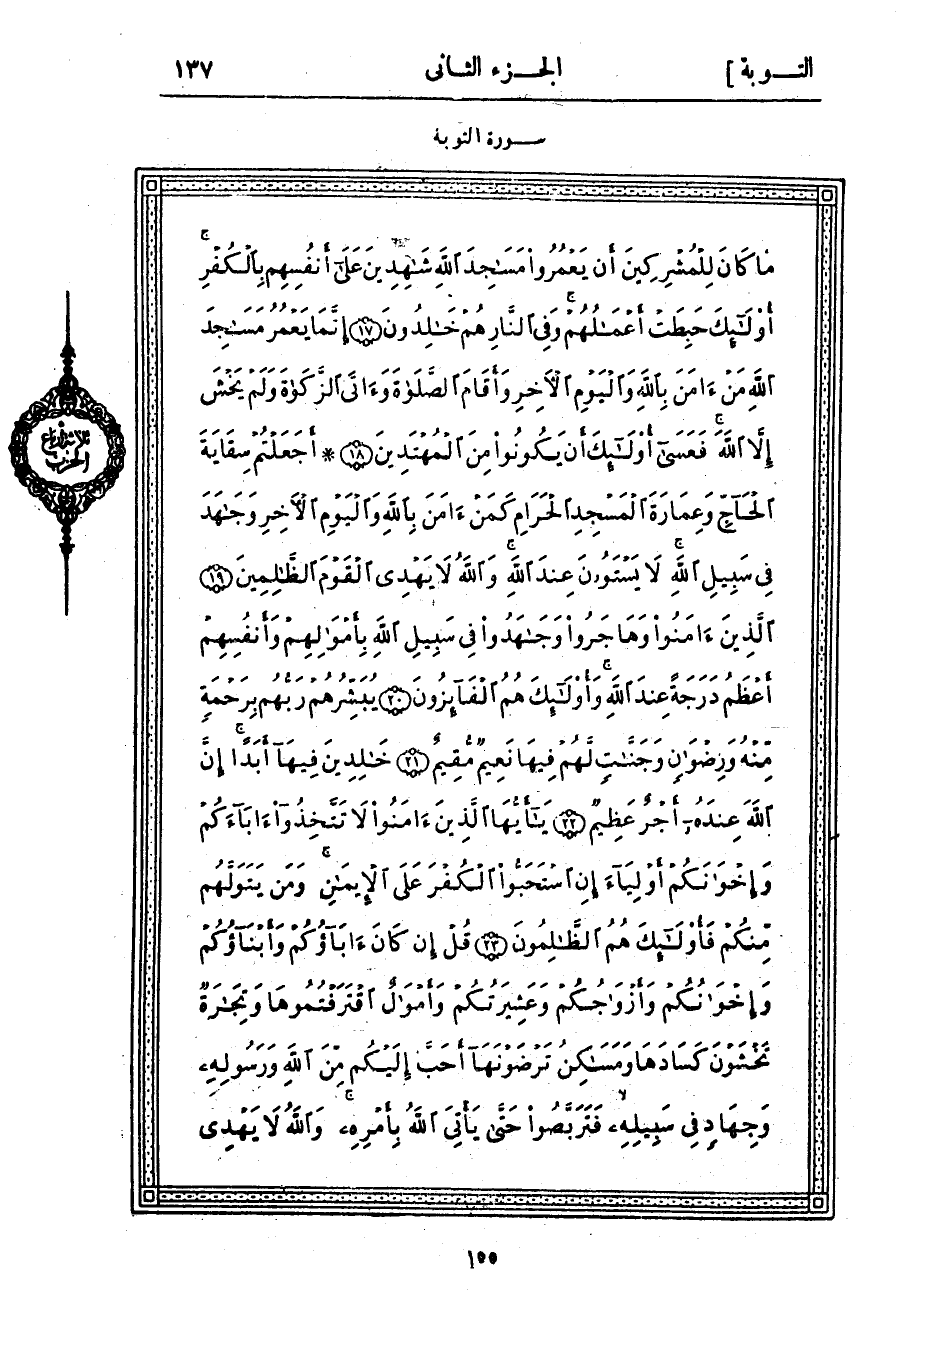 التـــوبة ]
الجـــزء الثـانى
١٣٧
ســـورة التوبة
مَا كَانَ لِلْمُشْرِكِينَ أَن يَعْمُرُوا۟ مَسَـٰجِدَ ٱللَّهِ شَـٰهِدِينَ عَلَىٰٓ أَنفُسِهِم بِٱلْكُفْرِ ۚ
أُو۟لَـٰٓئِكَ حَبِطَتْ أَعْمَـٰلُهُمْ ۚ وَفِى ٱلنَّارِ هُمْ خَـٰلِدُونَ ﴿١٧﴾ إِنَّمَا يَعْمُرُ مَسَـٰجِدَ
ٱللَّهِ مَنْ ءَامَنَ بِٱللَّهِ وَٱلْيَوْمِ ٱلْـَٔاخِرِ وَأَقَامَ ٱلصَّلَوٰةَ وَءَاتَى ٱلزَّكَوٰةَ وَلَمْ يَخْشَ
إِلَّا ٱللَّهَ ۖ فَعَسَىٰٓ أُو۟لَـٰٓئِكَ أَن يَكُونُوا۟ مِنَ ٱلْمُهْتَدِينَ ﴿١٨﴾ * أَجَعَلْتُمْ سِقَايَةَ
ٱلْحَآجِّ وَعِمَارَةَ ٱلْمَسْجِدِ ٱلْحَرَامِ كَمَنْ ءَامَنَ بِٱللَّهِ وَٱلْيَوْمِ ٱلْـَٔاخِرِ وَجَـٰهَدَ
فِى سَبِيلِ ٱللَّهِ ۚ لَا يَسْتَوُۥنَ عِندَ ٱللَّهِ ۚ وَٱللَّهُ لَا يَهْدِى ٱلْقَوْمَ ٱلظَّـٰلِمِينَ ﴿١٩﴾
ٱلَّذِينَ ءَامَنُوا۟ وَهَاجَرُوا۟ وَجَـٰهَدُوا۟ فِى سَبِيلِ ٱللَّهِ بِأَمْوَٰلِهِمْ وَأَنفُسِهِمْ
أَعْظَمُ دَرَجَةً عِندَ ٱللَّهِ ۚ وَأُو۟لَـٰٓئِكَ هُمُ ٱلْفَآئِزُونَ ﴿٢٠﴾ يُبَشِّرُهُمْ رَبُّهُم بِرَحْمَةٍ
مِّنْهُ وَرِضْوَٰنٍ وَجَنَّـٰتٍ لَّهُمْ فِيهَا نَعِيمٌ مُّقِيمٌ ﴿٢١﴾ خَـٰلِدِينَ فِيهَآ أَبَدًا ۚ إِنَّ
ٱللَّهَ عِندَهُۥٓ أَجْرٌ عَظِيمٌ ﴿٢٢﴾ يَـٰٓأَيُّهَا ٱلَّذِينَ ءَامَنُوا۟ لَا تَتَّخِذُوٓا۟ ءَابَآءَكُمْ
وَإِخْوَٰنَكُمْ أَوْلِيَآءَ إِنِ ٱسْتَحَبُّوا۟ ٱلْكُفْرَ عَلَى ٱلْإِيمَـٰنِ ۚ وَمَن يَتَوَلَّهُم
مِّنكُمْ فَأُو۟لَـٰٓئِكَ هُمُ ٱلظَّـٰلِمُونَ ﴿٢٣﴾ قُلْ إِن كَانَ ءَابَآؤُكُمْ وَأَبْنَآؤُكُمْ
وَإِخْوَٰنُكُمْ وَأَزْوَٰجُكُمْ وَعَشِيرَتُكُمْ وَأَمْوَٰلٌ ٱقْتَرَفْتُمُوهَا وَتِجَـٰرَةٌ
تَخْشَوْنَ كَسَادَهَا وَمَسَـٰكِنُ تَرْضَوْنَهَآ أَحَبَّ إِلَيْكُم مِّنَ ٱللَّهِ وَرَسُولِهِۦ
وَجِهَادٍ فِى سَبِيلِهِۦ فَتَرَبَّصُوا۟ حَتَّىٰ يَأْتِىَ ٱللَّهُ بِأَمْرِهِۦ ۗ وَٱللَّهُ لَا يَهْدِى
ثلاثة أرباع
الحزب
١٥٥